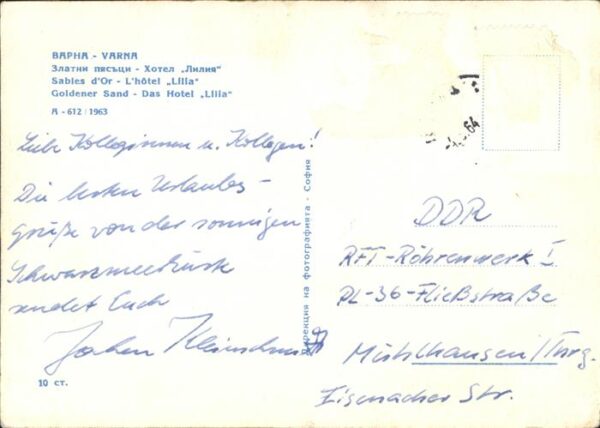 ВАРНА - VARNA
Златни пясъци - Хотел „Лилия"
Sables d'Or - L'hôtel „Lilia"
Goldener Sand - Das Hotel „Lilia"
А - 612 / 1963
Liebe Kolleginnen u. Kollegen!
Die besten Urlaubs-
grüße von der sonnigen
Schwarzmeerküste
sendet Euch
Jochen
10 ст.
Дирекция на фотографията - София
64
DDR
RFT-Röhrenwerk I
PL-36-Fließstraße
Mühlhausen/Turg.
Eisenacher Str.